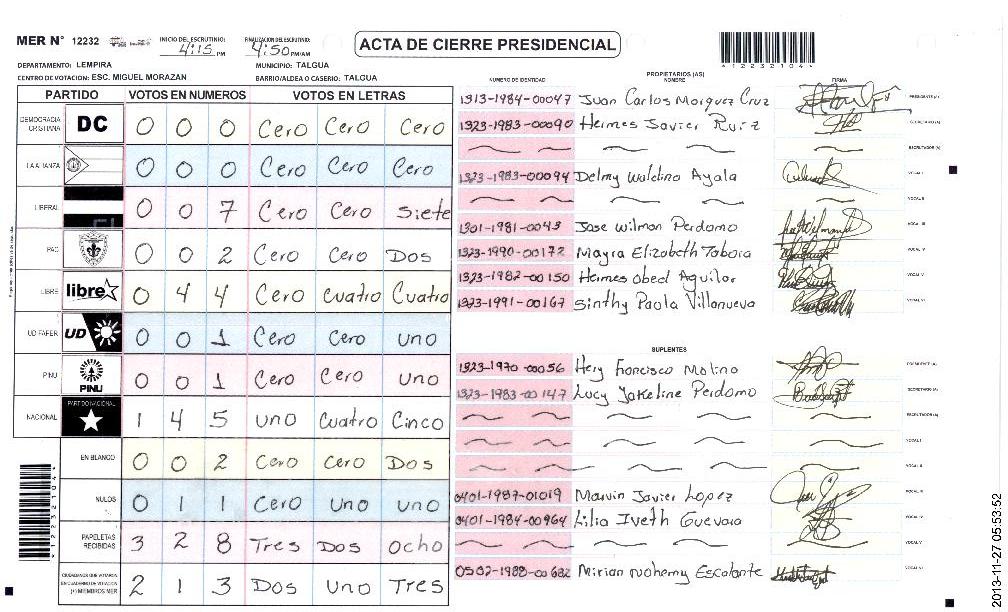 MER N° 12232 INICIO DEL ESCRUTINIO: 4:15 PM FINALIZACION DEL ESCRUTINIO: 4:50 PM/AM ACTA DE CIERRE PRESIDENCIAL
DEPARTAMENTO: LEMPIRA MUNICIPIO: TALGUA
CENTRO DE VOTACION: ESC. MIGUEL MORAZAN BARRIO/ALDEA O CASERIO: TALGUA
PARTIDO VOTOS EN NUMEROS VOTOS EN LETRAS
DEMOCRACIA CRISTIANA DC 0 0 0 Cero Cero Cero
LA ALIANZA 0 0 0 Cero Cero Cero
LIBERAL 0 0 7 Cero Cero Siete
PAC 0 0 2 Cero Cero Dos
LIBRE libre 0 4 4 Cero Cuatro Cuatro
UD FAPER UD 0 0 1 Cero Cero uno
PINU PINU 0 0 1 Cero Cero uno
NACIONAL PARTIDO NACIONAL 1 4 5 uno Cuatro Cinco
EN BLANCO 0 0 2 Cero Cero Dos
NULOS 0 1 1 Cero uno uno
PAPELETAS RECIBIDAS 3 2 8 Tres Dos ocho
CIUDADANOS QUE VOTARON EN CUADERNO DE VOTACION (+) MIEMBROS MER 2 1 3 Dos Uno Tres
PROPIETARIOS (AS)
NUMERO DE IDENTIDAD NOMBRE FIRMA
1313-1984-00047 Juan Carlos Marquez Cruz PRESIDENTE (A)
1323-1983-00090 Hermes Javier Ruiz SECRETARIO (A)
ESCRUTADOR (A)
1323-1983-00094 Delmy Waldina Ayala VOCAL I
VOCAL II
1301-1981-0043 Jose Wilman Perdomo VOCAL III
1323-1990-00172 Mayra Elizabeth Tabora VOCAL IV
1323-1982-00150 Hermes Obed Aguilar VOCAL V
1323-1991-00167 Sinthy Paola Villanueva VOCAL VI
SUPLENTES
1323-1970-00056 Hery Francisco Molina PRESIDENTE (A)
1323-1983-00147 Lucy Jakeline Perdomo SECRETARIO (A)
ESCRUTADOR (A)
VOCAL I
VOCAL II
0401-1987-01019 Marvin Javier Lopez VOCAL III
0401-1984-00964 Lilia Iveth Guevara VOCAL IV
VOCAL V
0502-1988-00682 Mirian Nohemy Escalante VOCAL VI
2013-11-27 05:53:52